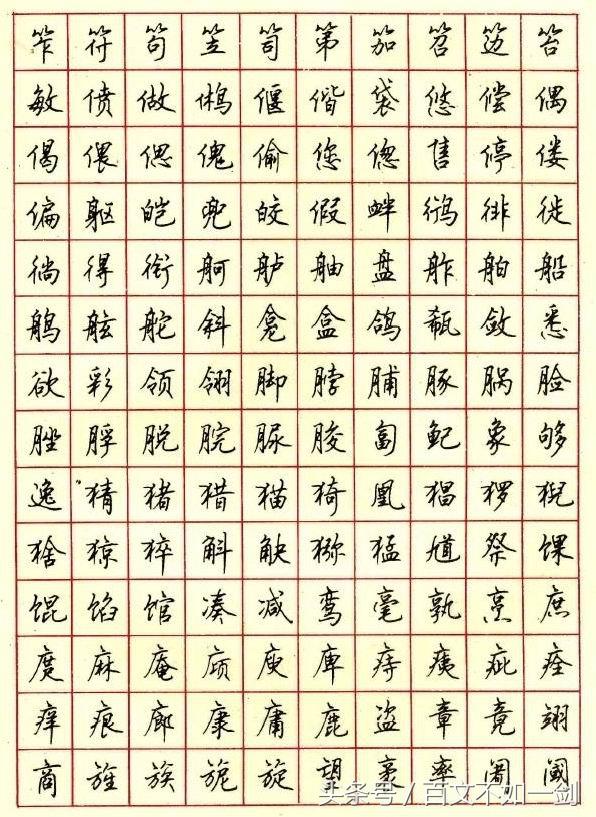 笮符笱笠笥第笳笤笾笞
敏偾做鸺偃偕袋悠偿偶
偈偎偲傀偷您偬售停偻
偏躯皑兜皎假衅鸻徘徙
徜得衔舸舻舳盘舴舶船
鸼舷舵斜龛盒鸽瓻敛悉
欲彩领翎脚脖脯豚脶脸
脞脬脱脘脲朘匐鱾象够
逸猜猪猎猫猗凰猖猡猊
猞猄猝斛觖猕猛馗祭馃
馄馅馆凑减鸾毫孰烹庶
庹麻庵庼庾庳痔痍疵痊
痒痕廊康庸鹿盗章竟翊
商旌族旎旋望袤率阇阈
头条号/百文不如一剑